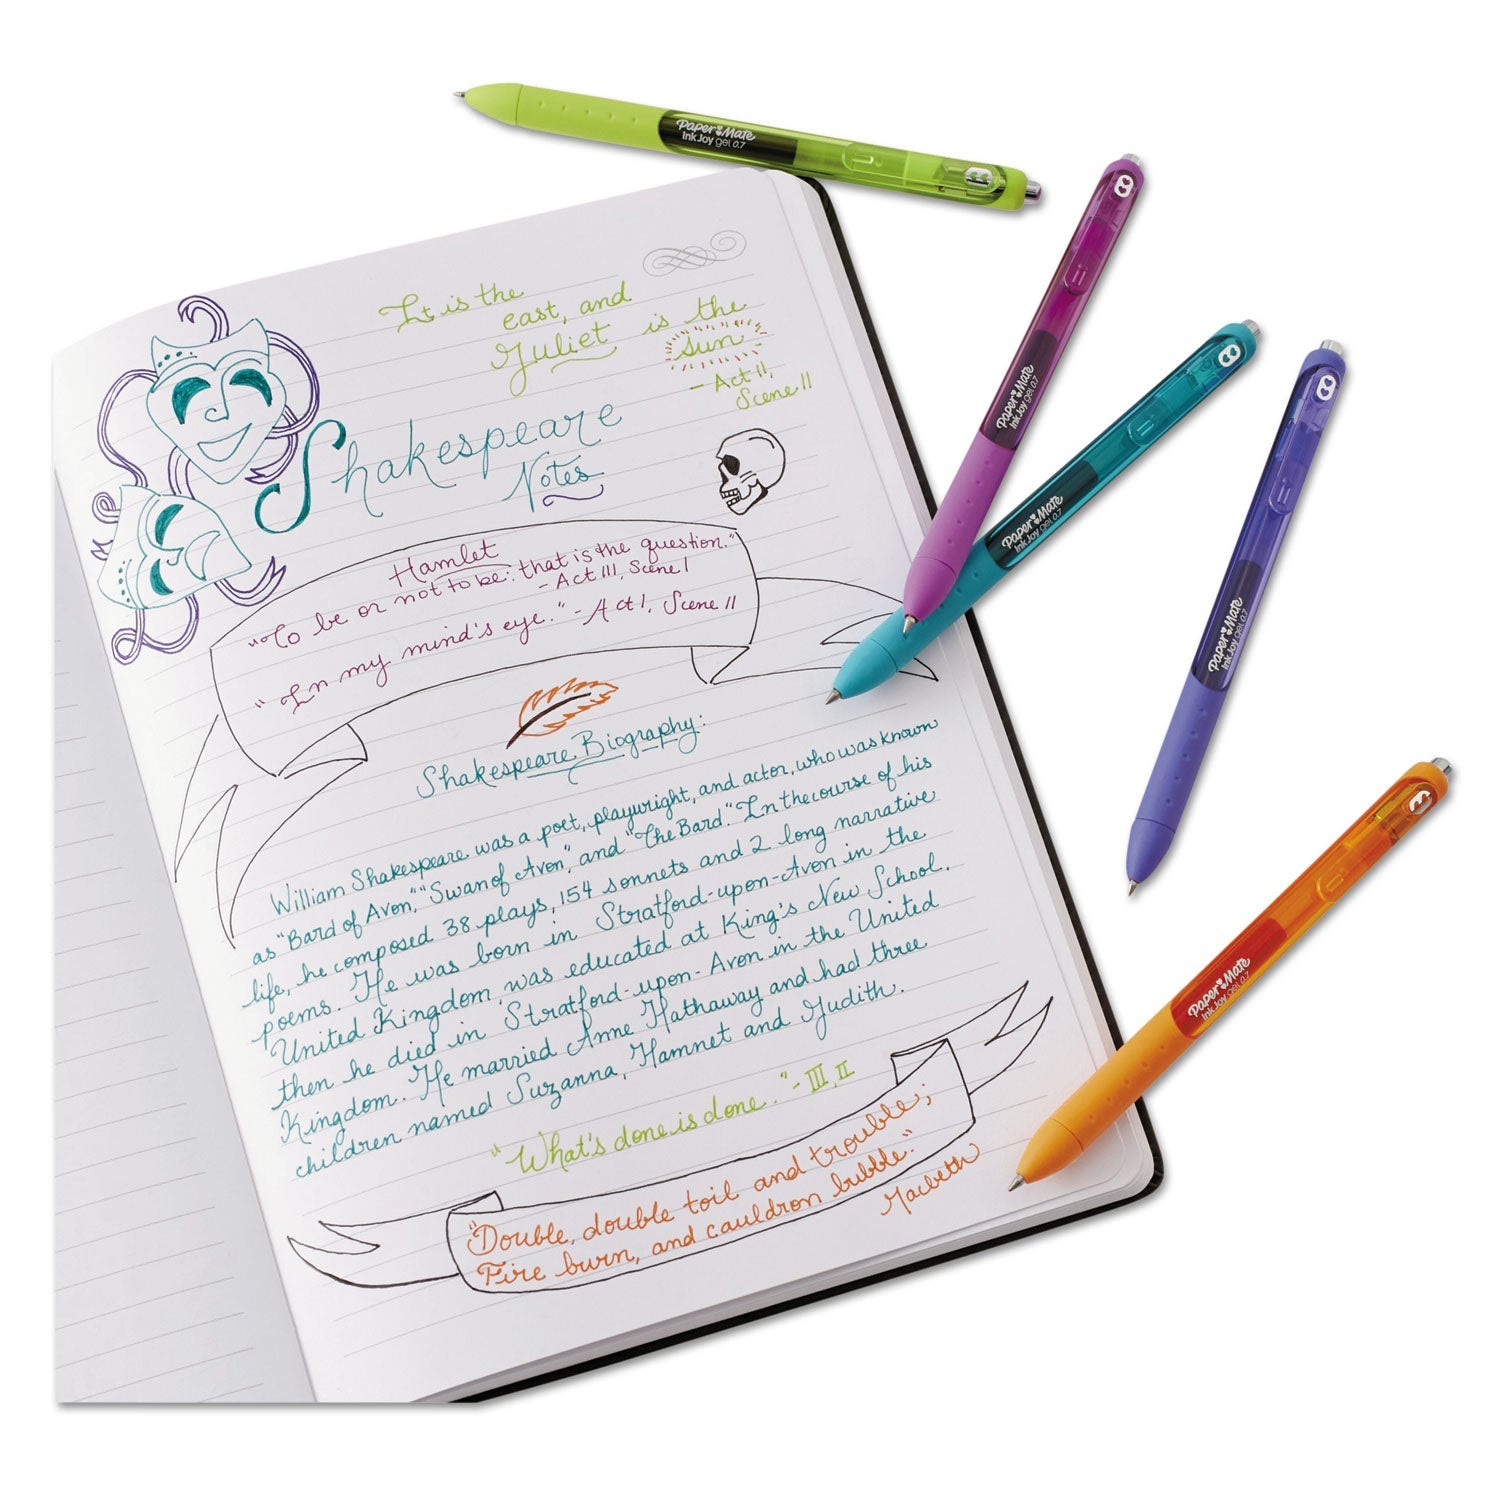 It is the
east, and
Juliet is the
sun
- Act II,
Scene II
Shakespeare
Notes
Hamlet
"To be or not to be: that is the question."
- Act III, Scene I
"In my mind's eye." - Act I, Scene II
Shakespeare Biography:
William Shakespeare was a poet, playwright, and actor, who was known
as "Bard of Avon," "Swan of Avon", and "The Bard". In the course of his
life, he composed 38 plays, 154 sonnets and 2 long narrative
poems. He was born in Stratford-upon-Avon in the
United Kingdom, was educated at King's New School.
then he died in Stratford-upon-Avon in the United
Kingdom. He married Anne Hathaway and had three
children named Suzanna, Hamnet and Judith.
"What's done is done." - III, II
"Double, double toil and trouble;
Fire burn, and cauldron bubble."
Macbeth
Paper Mate
InkJoy gel 0.7
Paper Mate
InkJoy gel 0.7
Paper Mate
InkJoy gel 0.7
Paper Mate
InkJoy gel 0.7
Paper Mate
InkJoy gel 0.7